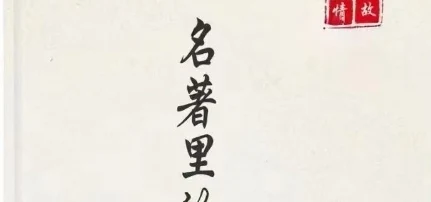 故
情
名著里